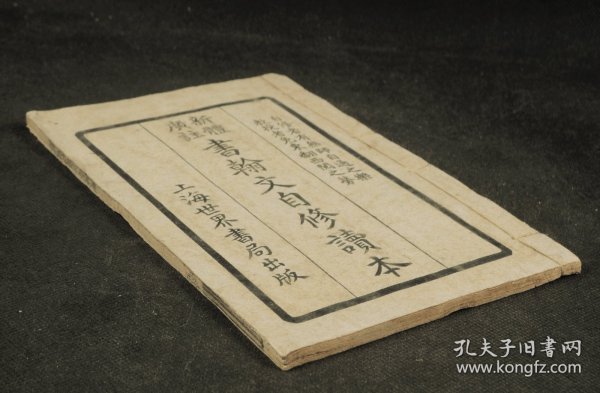 新體
廣註
書翰文自修讀本
上海世界書局出版
孔夫子旧书网
www.kongfz.com